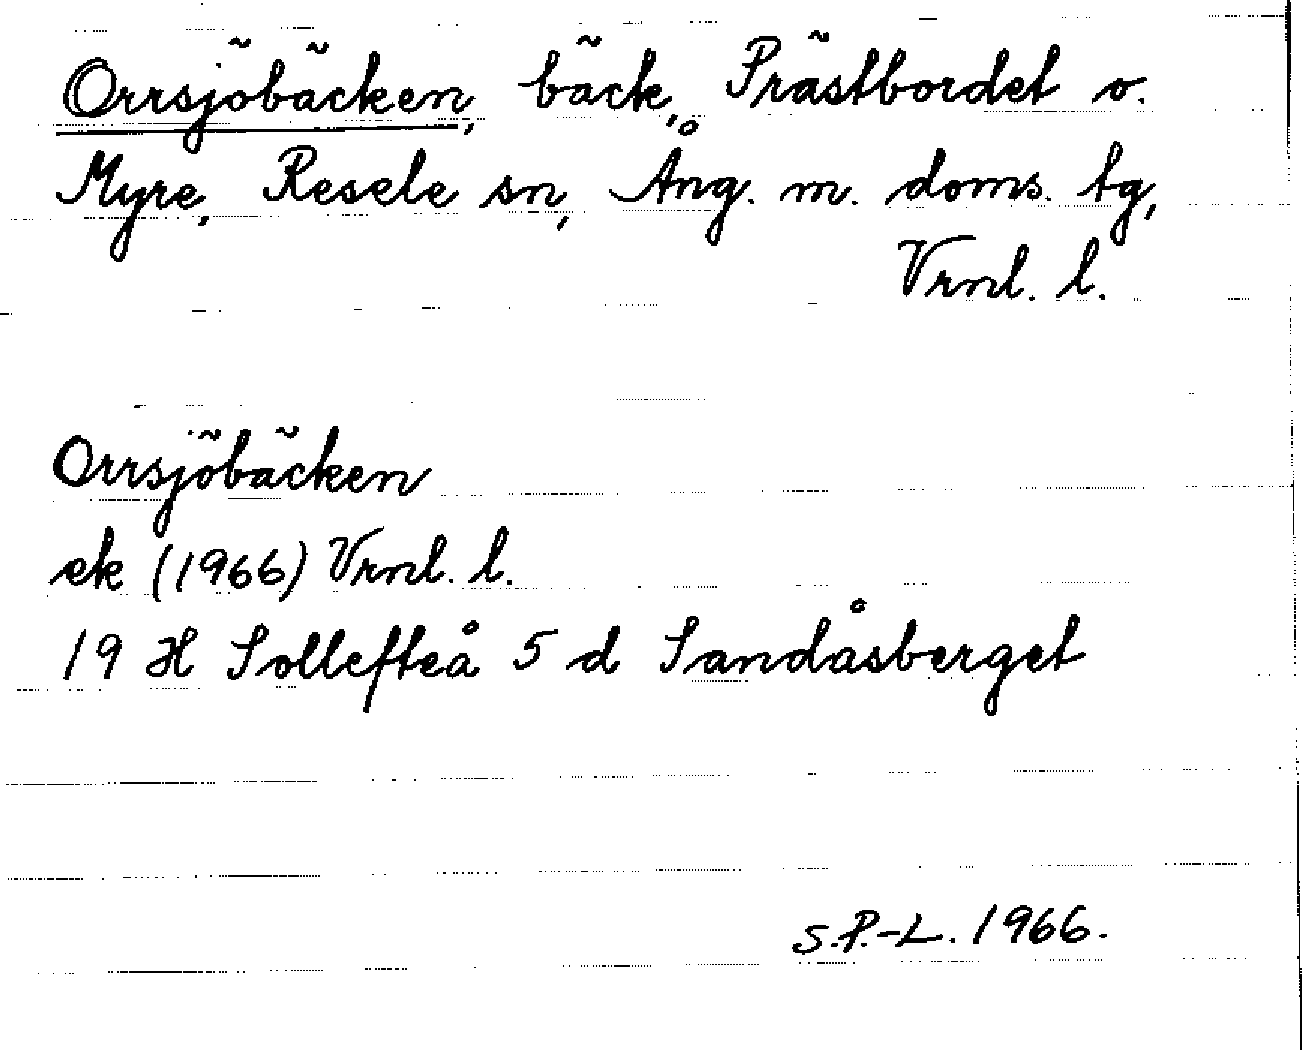 Orrsjöbäcken, bäck, Prästbordet o.
Myre, Resele sn, Ång. m. doms. tg,
Vrnl. l.
Orrsjöbäcken
ek (1966) Vrnl. l.
19 H Sollefteå 5 d Sandåsberget
S.P.-L. 1966.